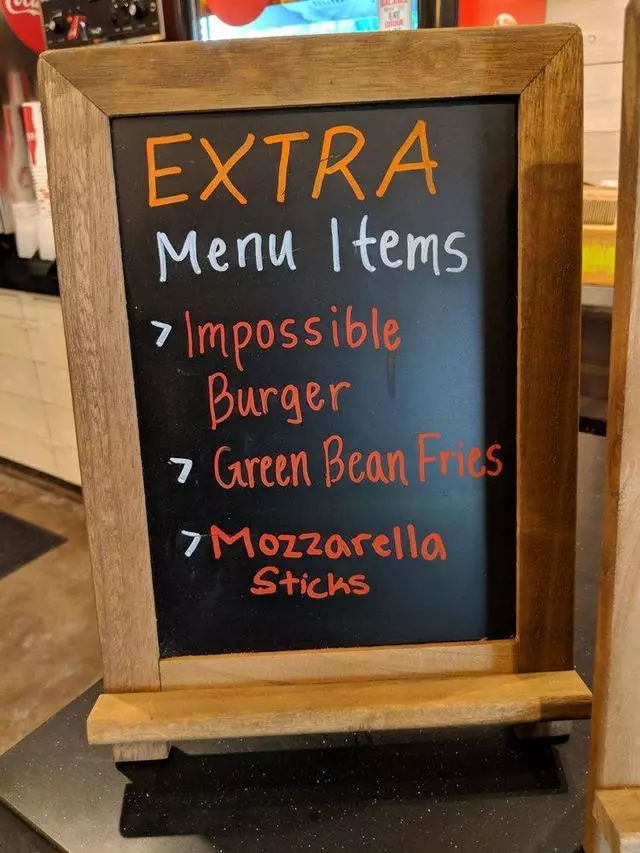 EXTRA
Menu Items
> Impossible
Burger
> Green Bean Fries
> Mozzarella
Sticks